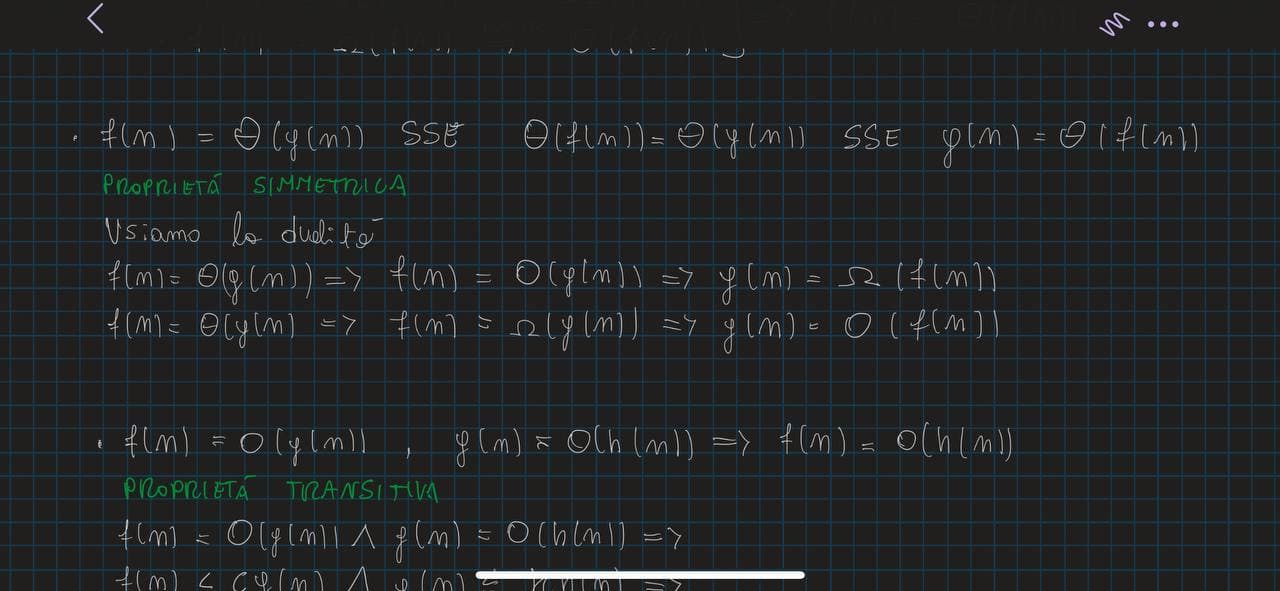 · f(n) = Θ(g(n)) SSE Θ(f(n)) = Θ(g(n)) SSE g(n) = Θ(f(n))
PROPRIETÁ SIMMETRICA
Usiamo la dualità
f(n) = Θ(g(n)) => f(n) = O(g(n)) => g(n) = Ω(f(n))
f(n) = Θ(g(n) => f(n) = Ω(g(n)) => g(n) = O(f(n))
· f(n) = O(g(n)) , g(n) = O(h(n)) => f(n) = O(h(n))
PROPRIETÁ TRANSITIVA
f(n) = O(g(n)) ∧ g(n) = O(h(n)) =>
f(n) < cg(n) ∧ g(n)